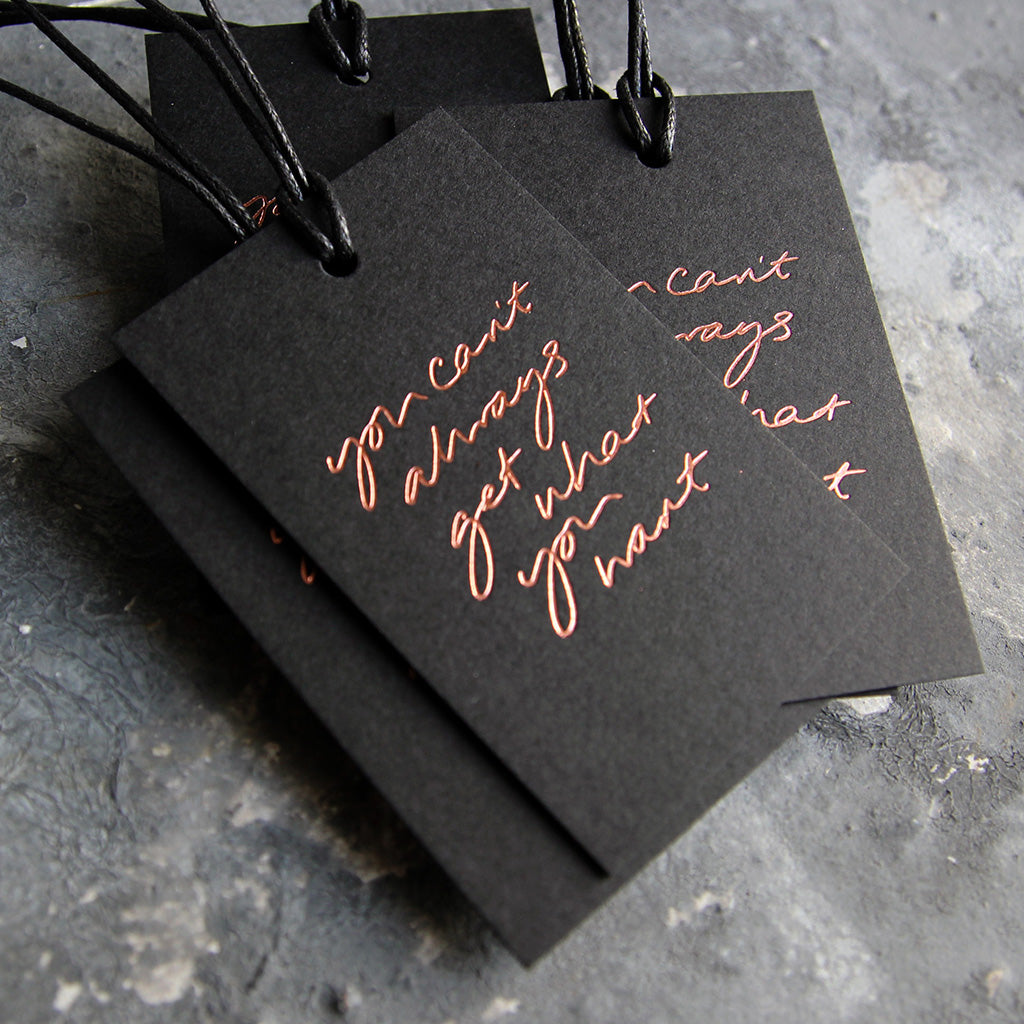 you can't
always
get what
you
want
can't
ways
hat
t